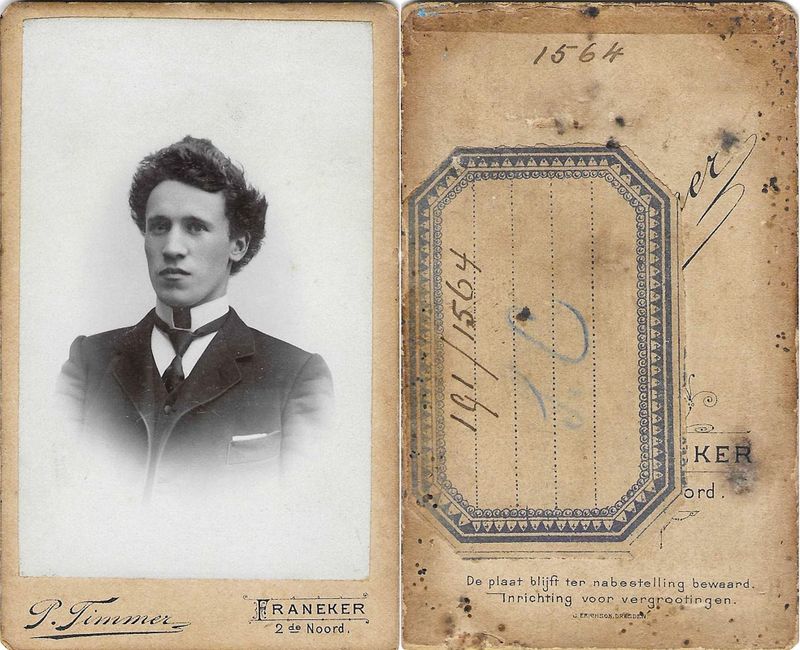 P. Timmer
FRANEKER
2 de Noord.
1564
mer
191/1564
KER
ord.
De plaat blijft ter nabestelling bewaard.
Inrichting voor vergrootingen.
J. ERICHSON, DRESDEN